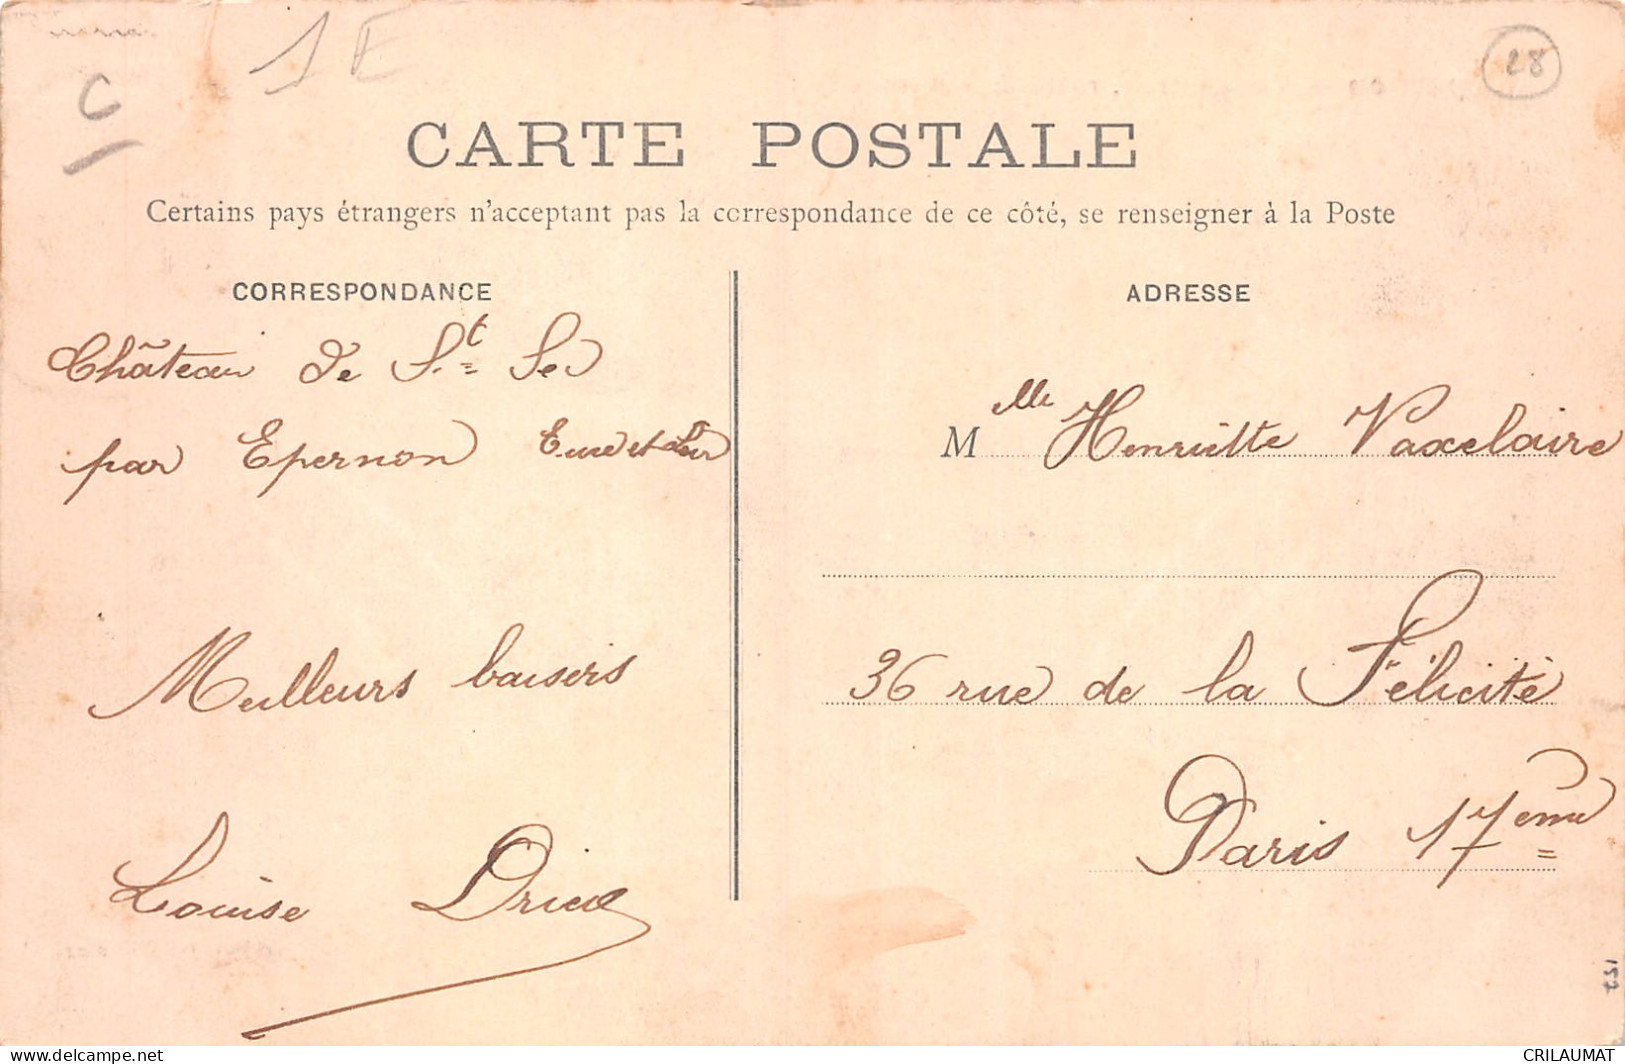 C
1 E
28
CARTE POSTALE
Certains pays étrangers n'acceptant pas la correspondance de ce côté, se renseigner à la Poste
CORRESPONDANCE
Château de St Se
par Epernon Eure et Loir
Meilleurs baisers
Louise Drieu
ADRESSE
Melle Henriette Vaxelaire
36 rue de la Félicité
Paris 17eme
157
www.delcampe.net
CRILAUMAT